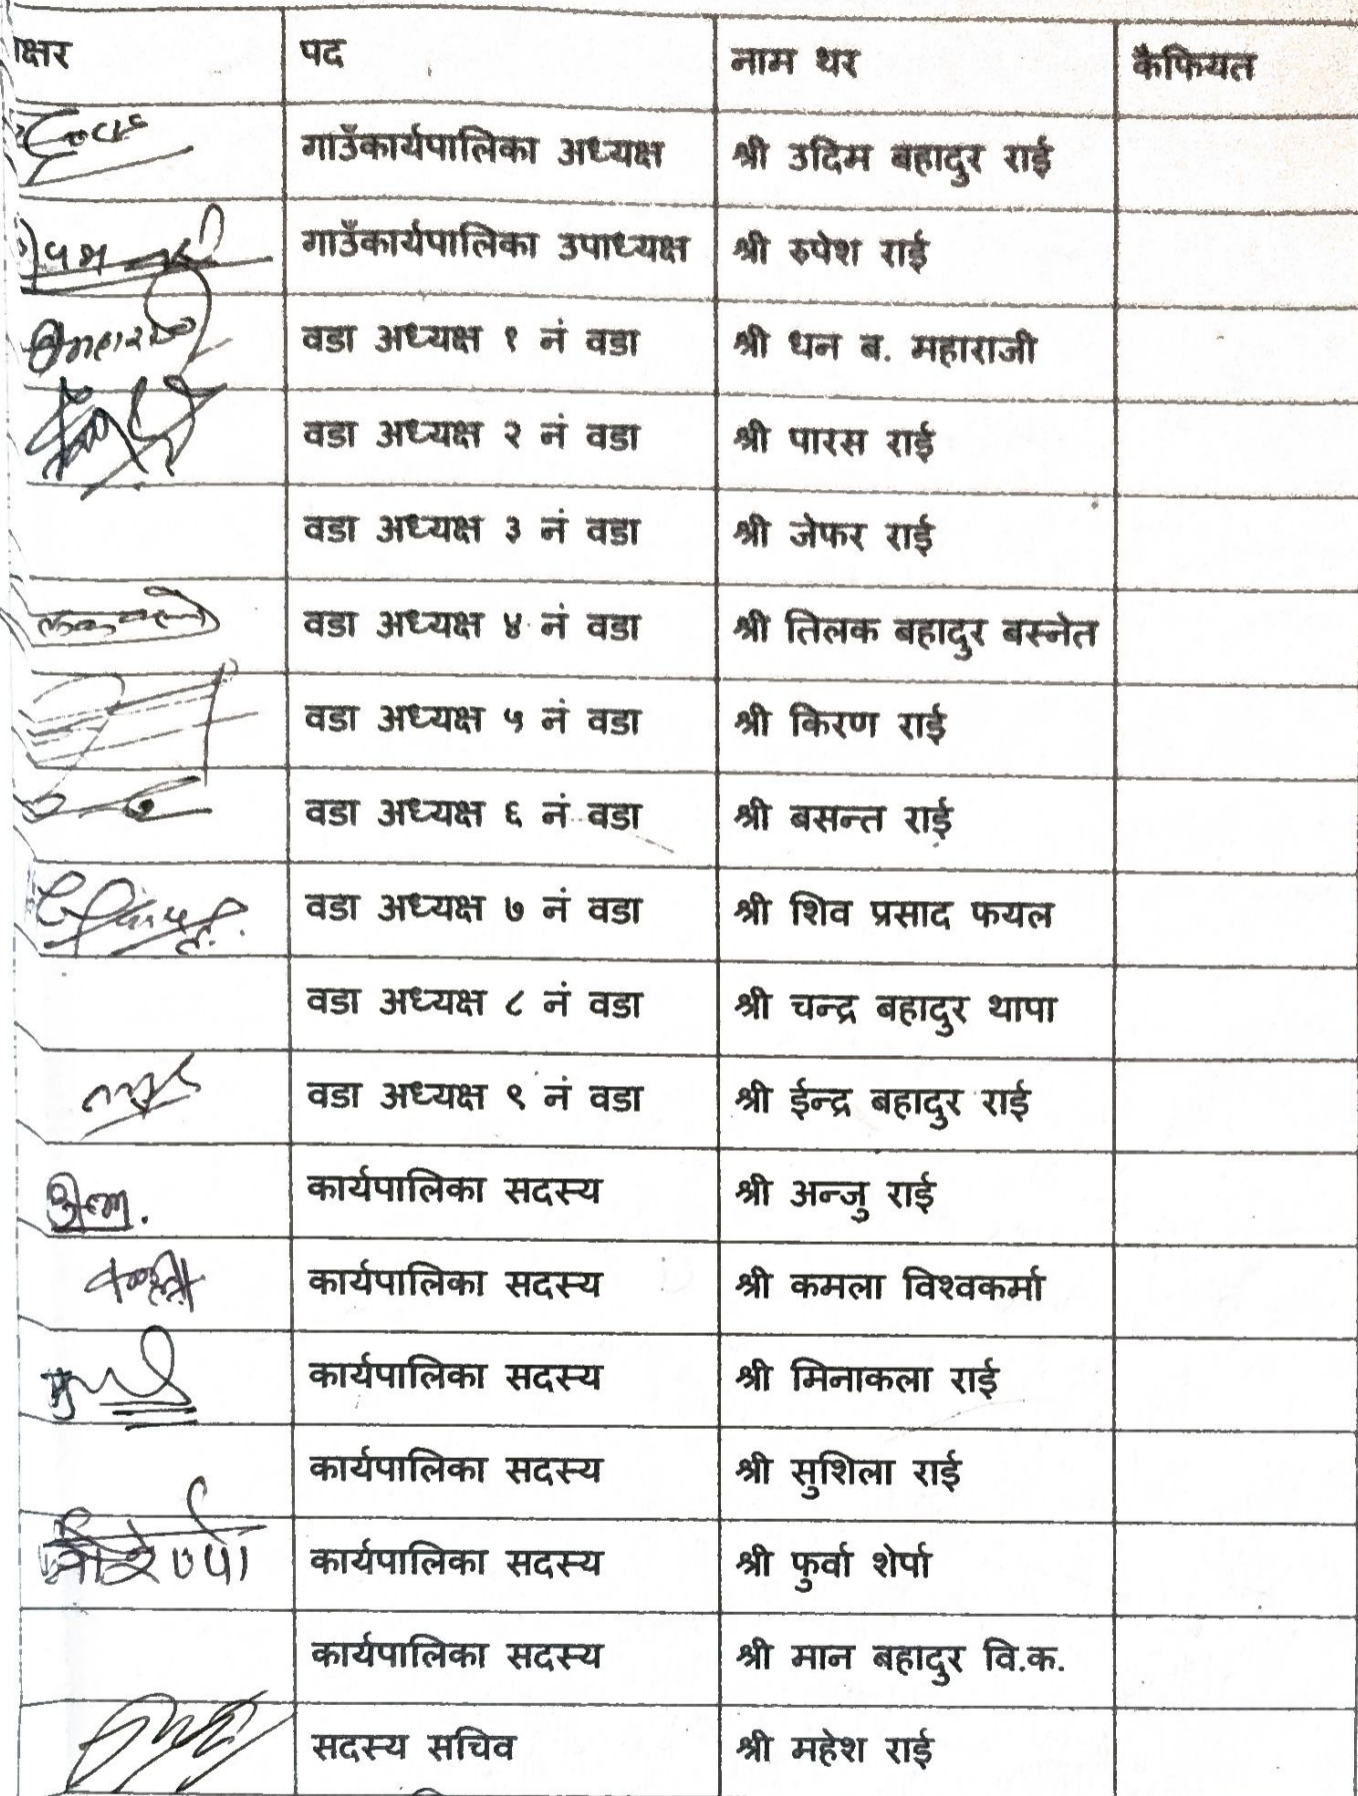 ाक्षर पद नाम थर कैफियत
गाउँकार्यपालिका अध्यक्ष श्री उदिम बहादुर राई
गाउँकार्यपालिका उपाध्यक्ष श्री रुपेश राई
वडा अध्यक्ष १ नं वडा श्री धन ब. महाराजी
वडा अध्यक्ष २ नं वडा श्री पारस राई
वडा अध्यक्ष ३ नं वडा श्री जेफर राई
वडा अध्यक्ष ४ नं वडा श्री तिलक बहादुर बस्नेत
वडा अध्यक्ष ५ नं वडा श्री किरण राई
वडा अध्यक्ष ६ नं वडा श्री बसन्त राई
वडा अध्यक्ष ७ नं वडा श्री शिव प्रसाद फयल
वडा अध्यक्ष ८ नं वडा श्री चन्द्र बहादुर थापा
वडा अध्यक्ष ९ नं वडा श्री ईन्द्र बहादुर राई
कार्यपालिका सदस्य श्री अन्जु राई
कार्यपालिका सदस्य श्री कमला विश्वकर्मा
कार्यपालिका सदस्य श्री मिनाकला राई
कार्यपालिका सदस्य श्री सुशिला राई
कार्यपालिका सदस्य श्री फुर्वा शेर्पा
कार्यपालिका सदस्य श्री मान बहादुर वि.क.
सदस्य सचिव श्री महेश राई